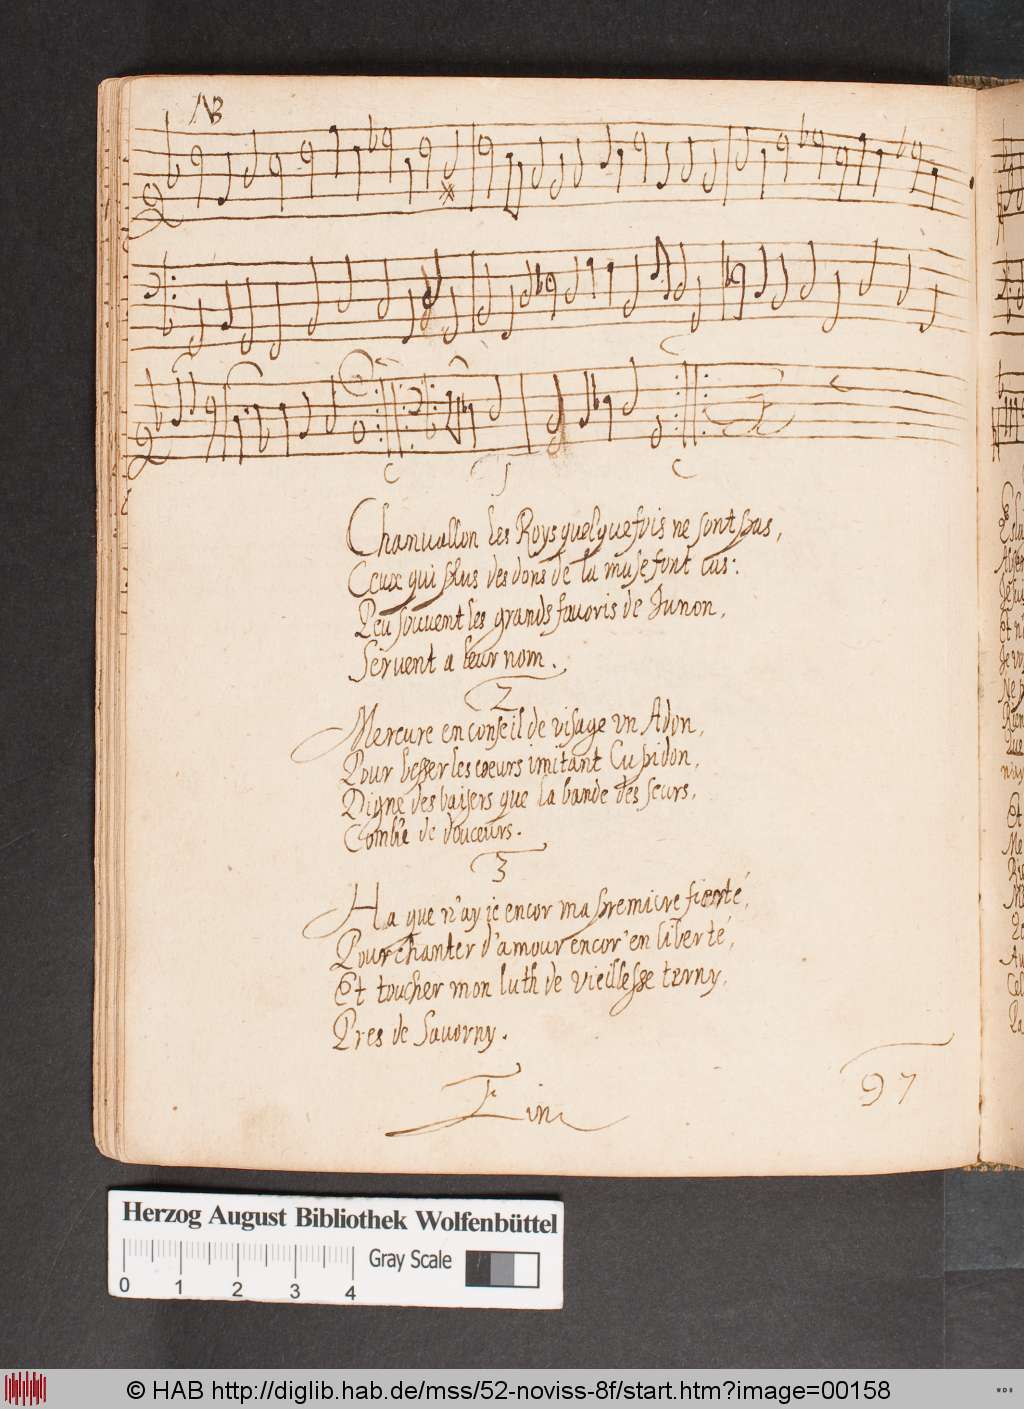 NB
Chanuallon les Roys quelquefois ne sont pas,
Ceux qui plus des dons de la muse font cas:
Peu souuent les grands fauoris de Junon,
Seruent a leur nom.
2
Mercure en conseil de visage vn Adon,
Pour blesser les coeurs imitant Cupidon,
Digne des baisers que la bande des seurs,
Comble de douceurs.
3
Ha que n'ay ie encor ma premiere fierté,
Pour chanter d'amour encor' en liberté,
Et toucher mon luth de vieillesse terny,
Pres de Sauorny.
Fin
97
Herzog August Bibliothek Wolfenbüttel
Gray Scale
0 1 2 3 4
© HAB http://diglib.hab.de/mss/52-noviss-8f/start.htm?image=00158